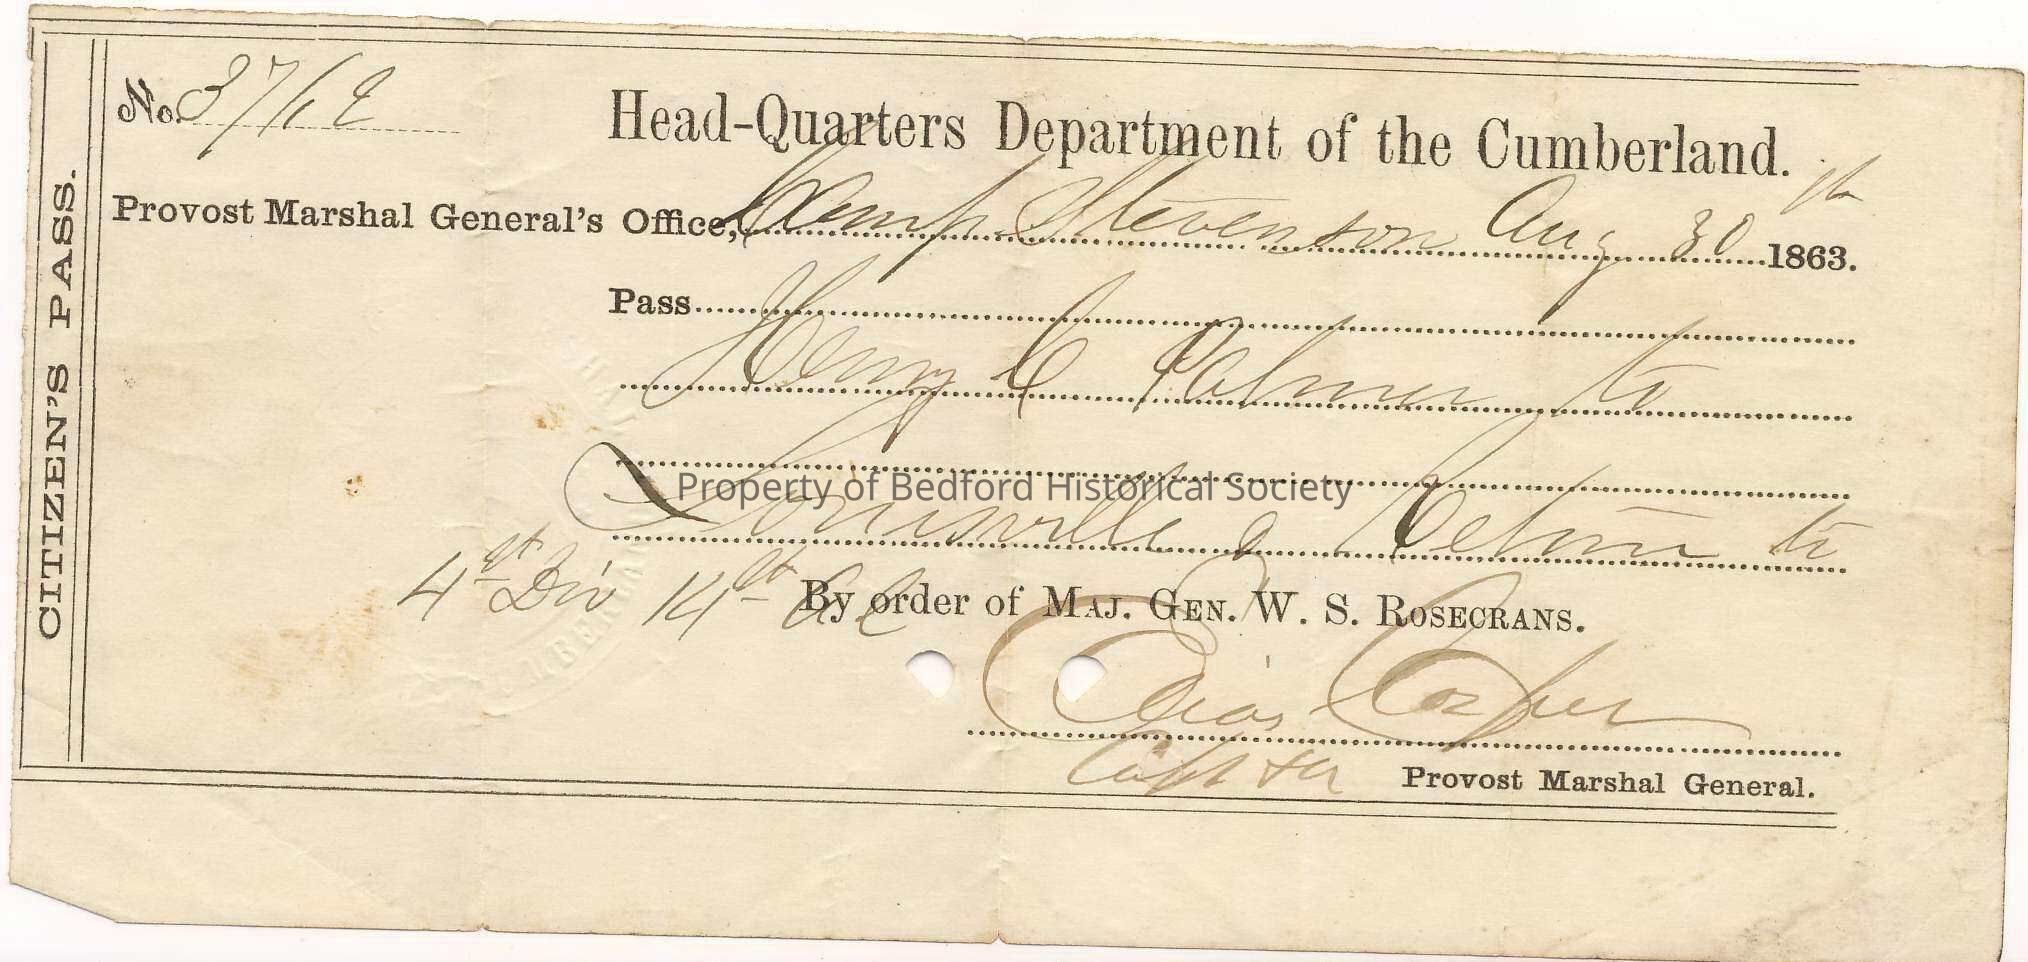 CITIZEN'S PASS.
No. 3712
Head-Quarters Department of the Cumberland.
Provost Marshal General's Office, Camp Stevenson Aug 30th 1863.
Pass
Henry C Palmer to
Property of Bedford Historical Society
Louisville & Return to
4th Div 14th A.C
By order of MAJ. GEN. W. S. ROSECRANS.
Elias Cosper
Capt &
Provost Marshal General.